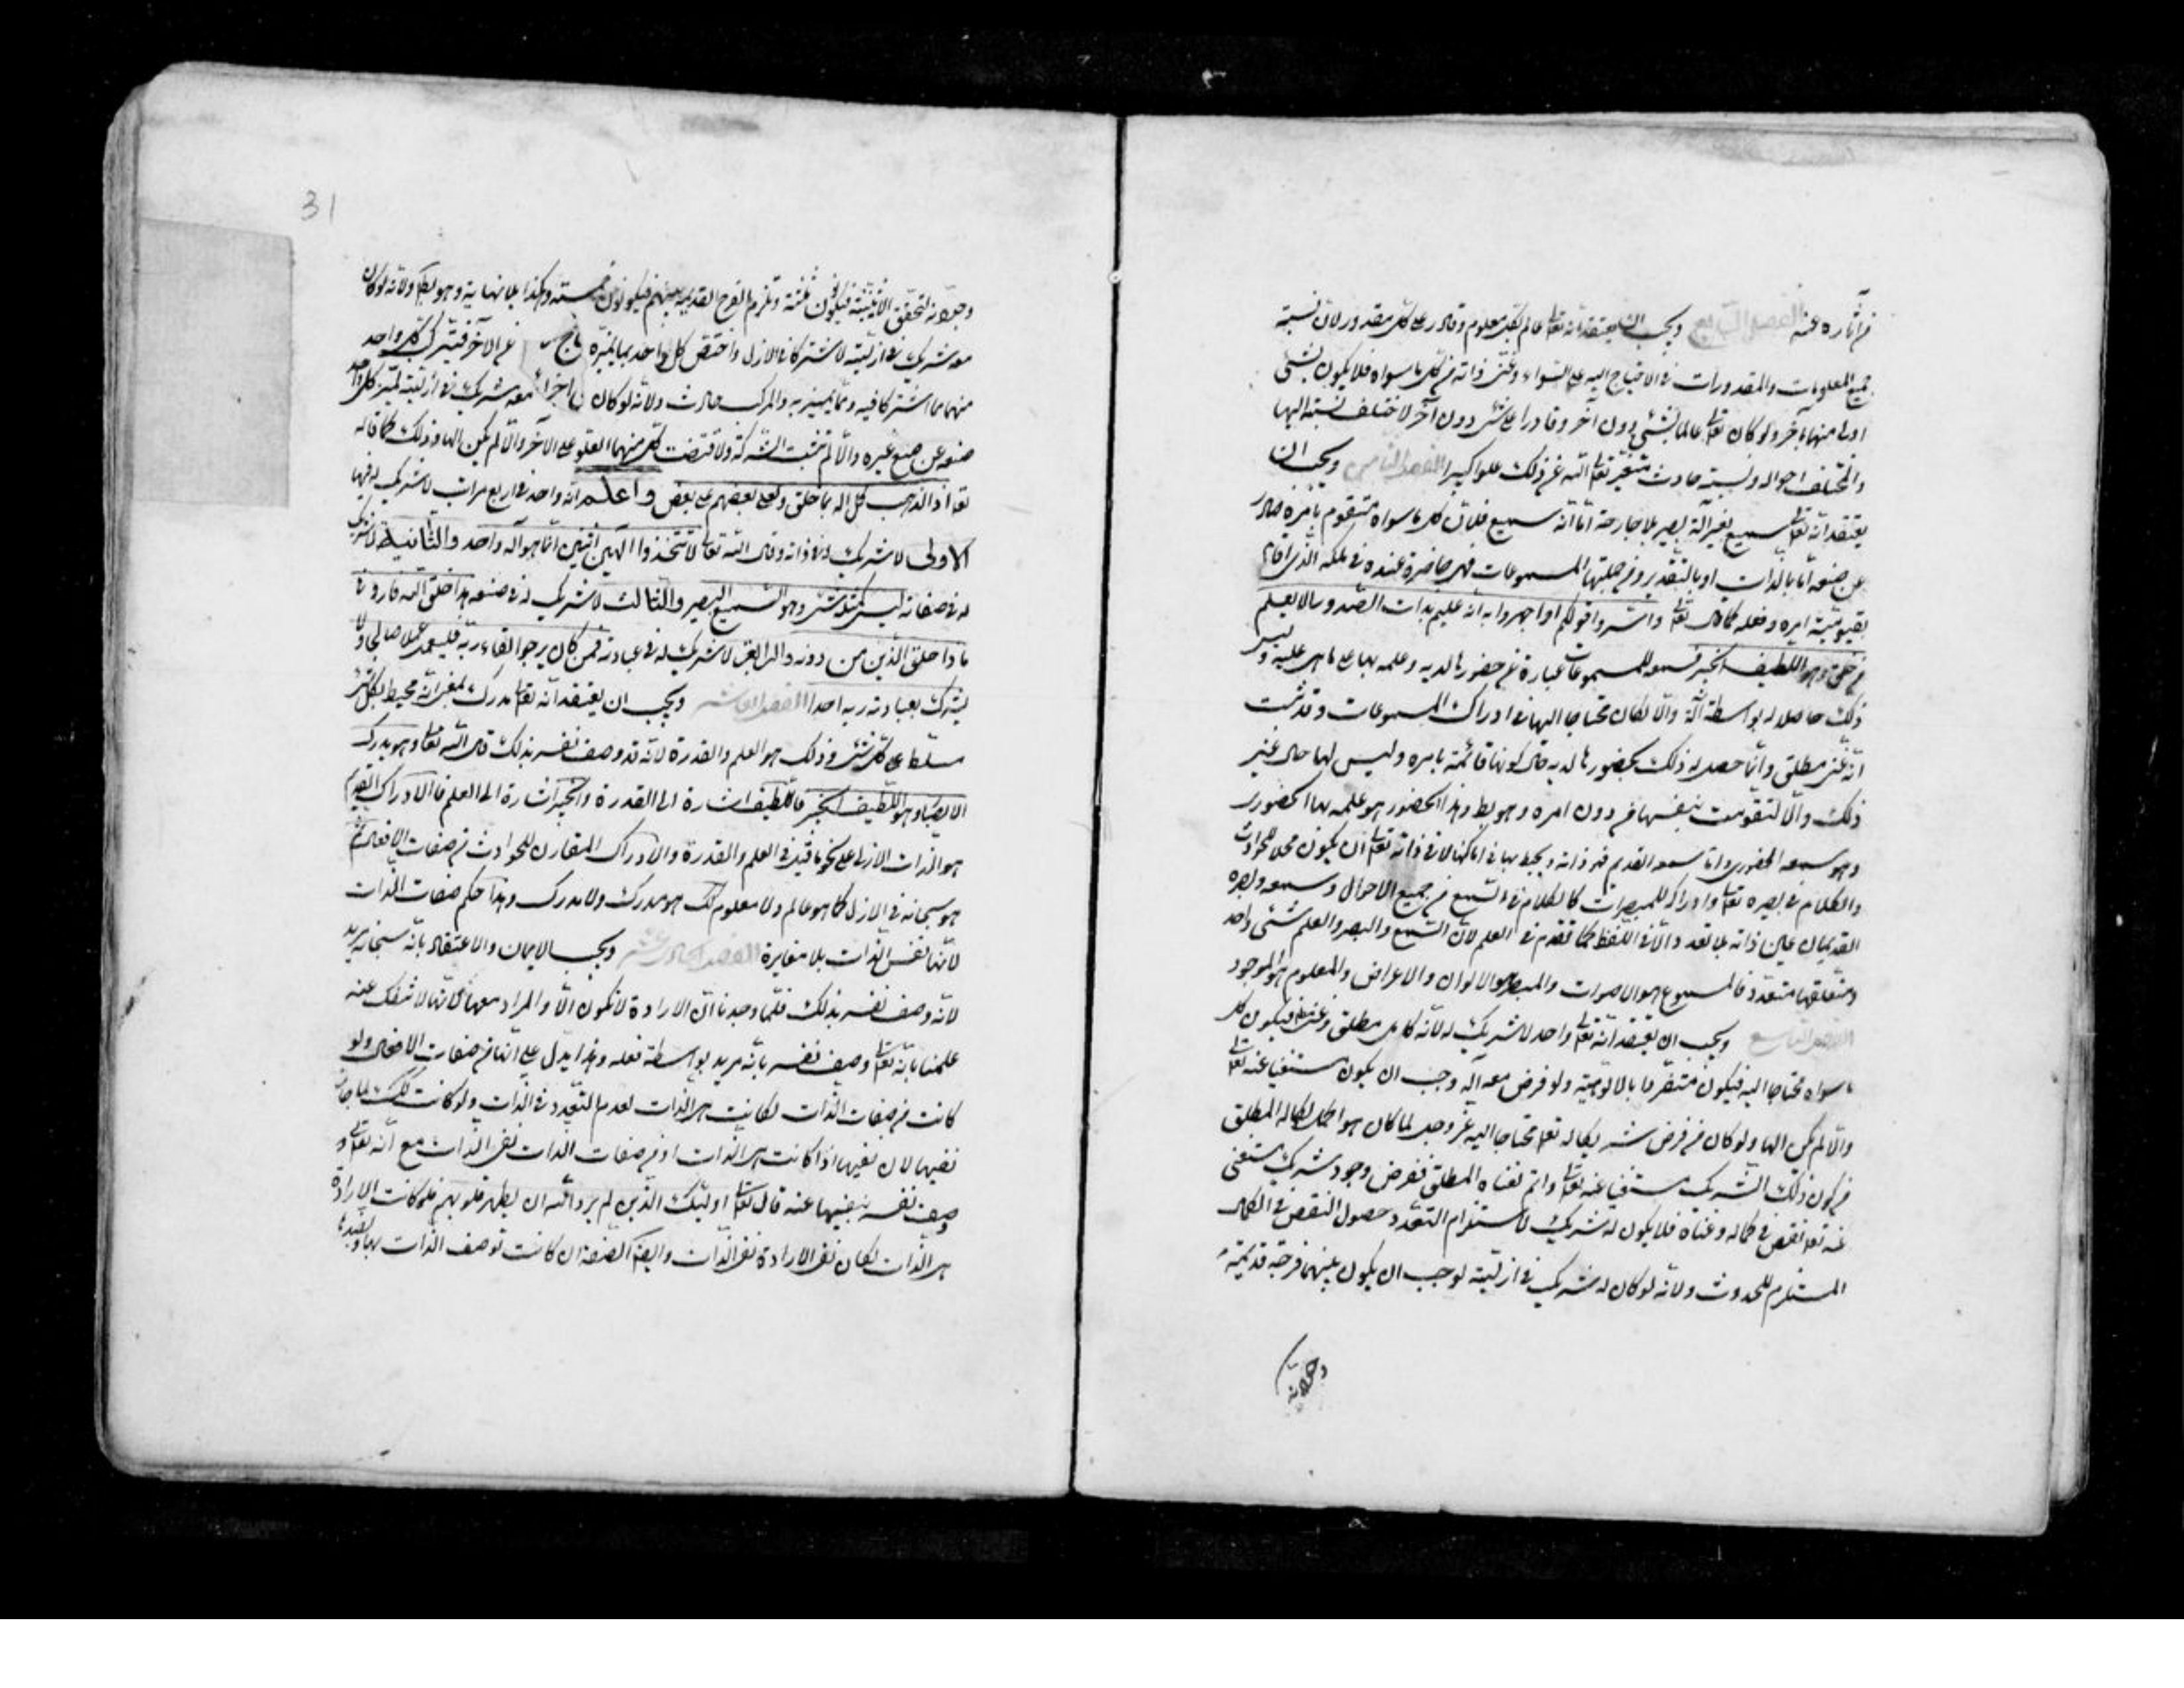 من آثاره عنه الفصل السابع ويجب ان يعتقد انه تعالى عالم بكل معلوم وقادر على كل مقدور لان نسبة
جميع المعلومات والمقدورات في الاحتياج اليه على السواء وغنى ذاته عن كل ما سواه فلا يكون بشئ
اولى منها بآخر ولو كان تعالى عالما بشئ دون آخر وقادرا على شئ دون آخر لاختلف نسبته اليها
والمختلف احواله ونسبته حادث متغير تعالى الله عن ذلك علوا كبيرا الفصل الثامن ويجب ان
يعتقد انه تعالى سميع بغير آلة بصير بلا جارحة اما انه سميع فلان كل ما سواه متقوم بامره صادر
عن صنعه اما بالذات او بالتقدير وفي جملتها المسموعات فهي حاضرة عنده في ملكه الذي اقامه
بقيومية امره وفعله كما قال تعالى واسروا قولكم او اجهروا به انه عليم بذات الصدور الا يعلم
من خلق وهو اللطيف الخبير فسمعه للمسموعات عبارة عن حضورها لديه وعلمه بها على ما هي عليه وليس
ذلك حاصلا له بواسطة آلة والا لكان محتاجا اليها في ادراك المسموعات وقد ثبت
انه غني مطلق وانما حصل له ذلك بحضورها لديه حال كونها قائمة بامره وليس لها حال غير
ذلك والا لتقومت بنفسها من دون امره وهو بط وهذا الحضور هو علمه بها الحضوري
وهو سمعه الحضوري واما سمعه القديم فهو ذاته ويحيط بها في اماكنها لا في ذاته تعالى ان يكون محلا للحوادث
والكلام في بصره تعالى وادراكه للمبصرات كالكلام في السمع في جميع الاحوال وسمعه وبصره
القديمان عين ذاته بلا تعدد الا في اللفظ كما تقدم في العلم لان السمع والبصر والعلم شئ واحد
ومتعلقها متعدد فالمسموع هو الاصوات والمبصر هو الالوان والاعراض والمعلوم هو الموجود
الفصل التاسع ويجب ان يعتقد انه تعالى واحد لا شريك له لانه كامل مطلق وغني مطلق فيكون كل
ما سواه محتاجا اليه فيكون متفردا بالالوهية ولو فرض معه آله وجب ان يكون مستغنيا عنه تعالى
والا لم يكن الها ولو كان من فرض شريكا له تعالى محتاجا اليه عز وجل لما كان هو اكمل لكماله المطلق
من كون ذلك الشريك مستغنيا عنه تعالى واتم لغناه المطلق ففرض وجود شريك مستغني
عنه تعالى نقص في كماله وغناه فلا يكون له شريك لاستلزام التعدد حصول النقص في الكمال
المستلزم للحدوث ولانه لو كان له شريك في ازليته لوجب ان يكون بينهما فرجة قديمة
وجودية
31
وجودية لتحقق الاثنينية فيكون ثلثة وتلزم الفرج القديمة بينهم فيكونون خمسة وهكذا بلا نهاية وهو بط ولانه لو كان
معه شريك في ازليته لاشتركا في الازل واختص كل واحد بما يميزه عن الآخر فتركب كل واحد
منهما مما اشتركا فيه ومما يتميز به والمركب حادث ولانه لو كان معه شريك في ازليته لميز كل واحد
صنعه عن صنع غيره والا لم تثبت الشركة ولاقتضت كل منهما العلو على الآخر والا لم يكن الها وذلك كما قال
تعالى اذا لذهب كل اله بما خلق ولعلى بعضهم على بعض واعلم انه واحد في اربع مراتب لا شريك له فيها
الاولى لا شريك له في ذاته وقال الله تعالى لا تتخذوا الهين اثنين انما هو آله واحد والثانية لا شريك
له في صفاته ليس كمثله شئ وهو السميع البصير والثالث لا شريك له في صنعه هذا خلق الله فاروني
ماذا خلق الذين من دونه والرابعة لا شريك له في عبادته فمن كان يرجوا لقاء ربه فليعمل عملا صالحا ولا
يشرك بعبادة ربه احدا الفصل العاشر ويجب ان يعتقد انه تعالى مدرك بمعنى انه محيط بكل شئ
مسلط على كل شئ وذلك هو العلم والقدرة لانه قد وصف نفسه بذلك قال الله تعالى وهو يدرك
الابصار وهو اللطيف الخبير فاللطيف اشارة الى القدرة والخبير اشارة الى العلم فالادراك القديم
هو الذات الازلي على نحو ما قيل في العلم والقدرة والادراك المقارن للحوادث من صفات الافعال ثم
هو سبحانه في الازل كما هو عالم ولا معلوم كذلك هو مدرك ولا مدرك وهذا حكم صفات الذات
لانها نفس الذات بلا مغايرة الفصل الحادي عشر ويجب الايمان والاعتقاد بانه سبحانه مريد
لانه وصف نفسه بذلك فلما وجدنا ان الارادة لا تكون الا والمراد معها لانها لا تنفك عنه
علمنا بانه تعالى وصف نفسه بانه مريد بواسطة فعله وهذا يدل على انها من صفات الافعال ولو
كانت من صفات الذات لكانت هي الذات لعدم التعدد في الذات ولو كانت كذلك لما جاز
نفيها لان نفيها اذا كانت هي الذات او من صفات الذات نفي الذات مع انه تعالى قد
وصف نفسه بنفيها عنه قال تعالى اولئك الذين لم يرد الله ان يطهر قلوبهم فلو كانت الارادة
هي الذات لكان نفي الارادة نفي الذات وايضا الصفة ان كانت توصف الذات بها وبضدها